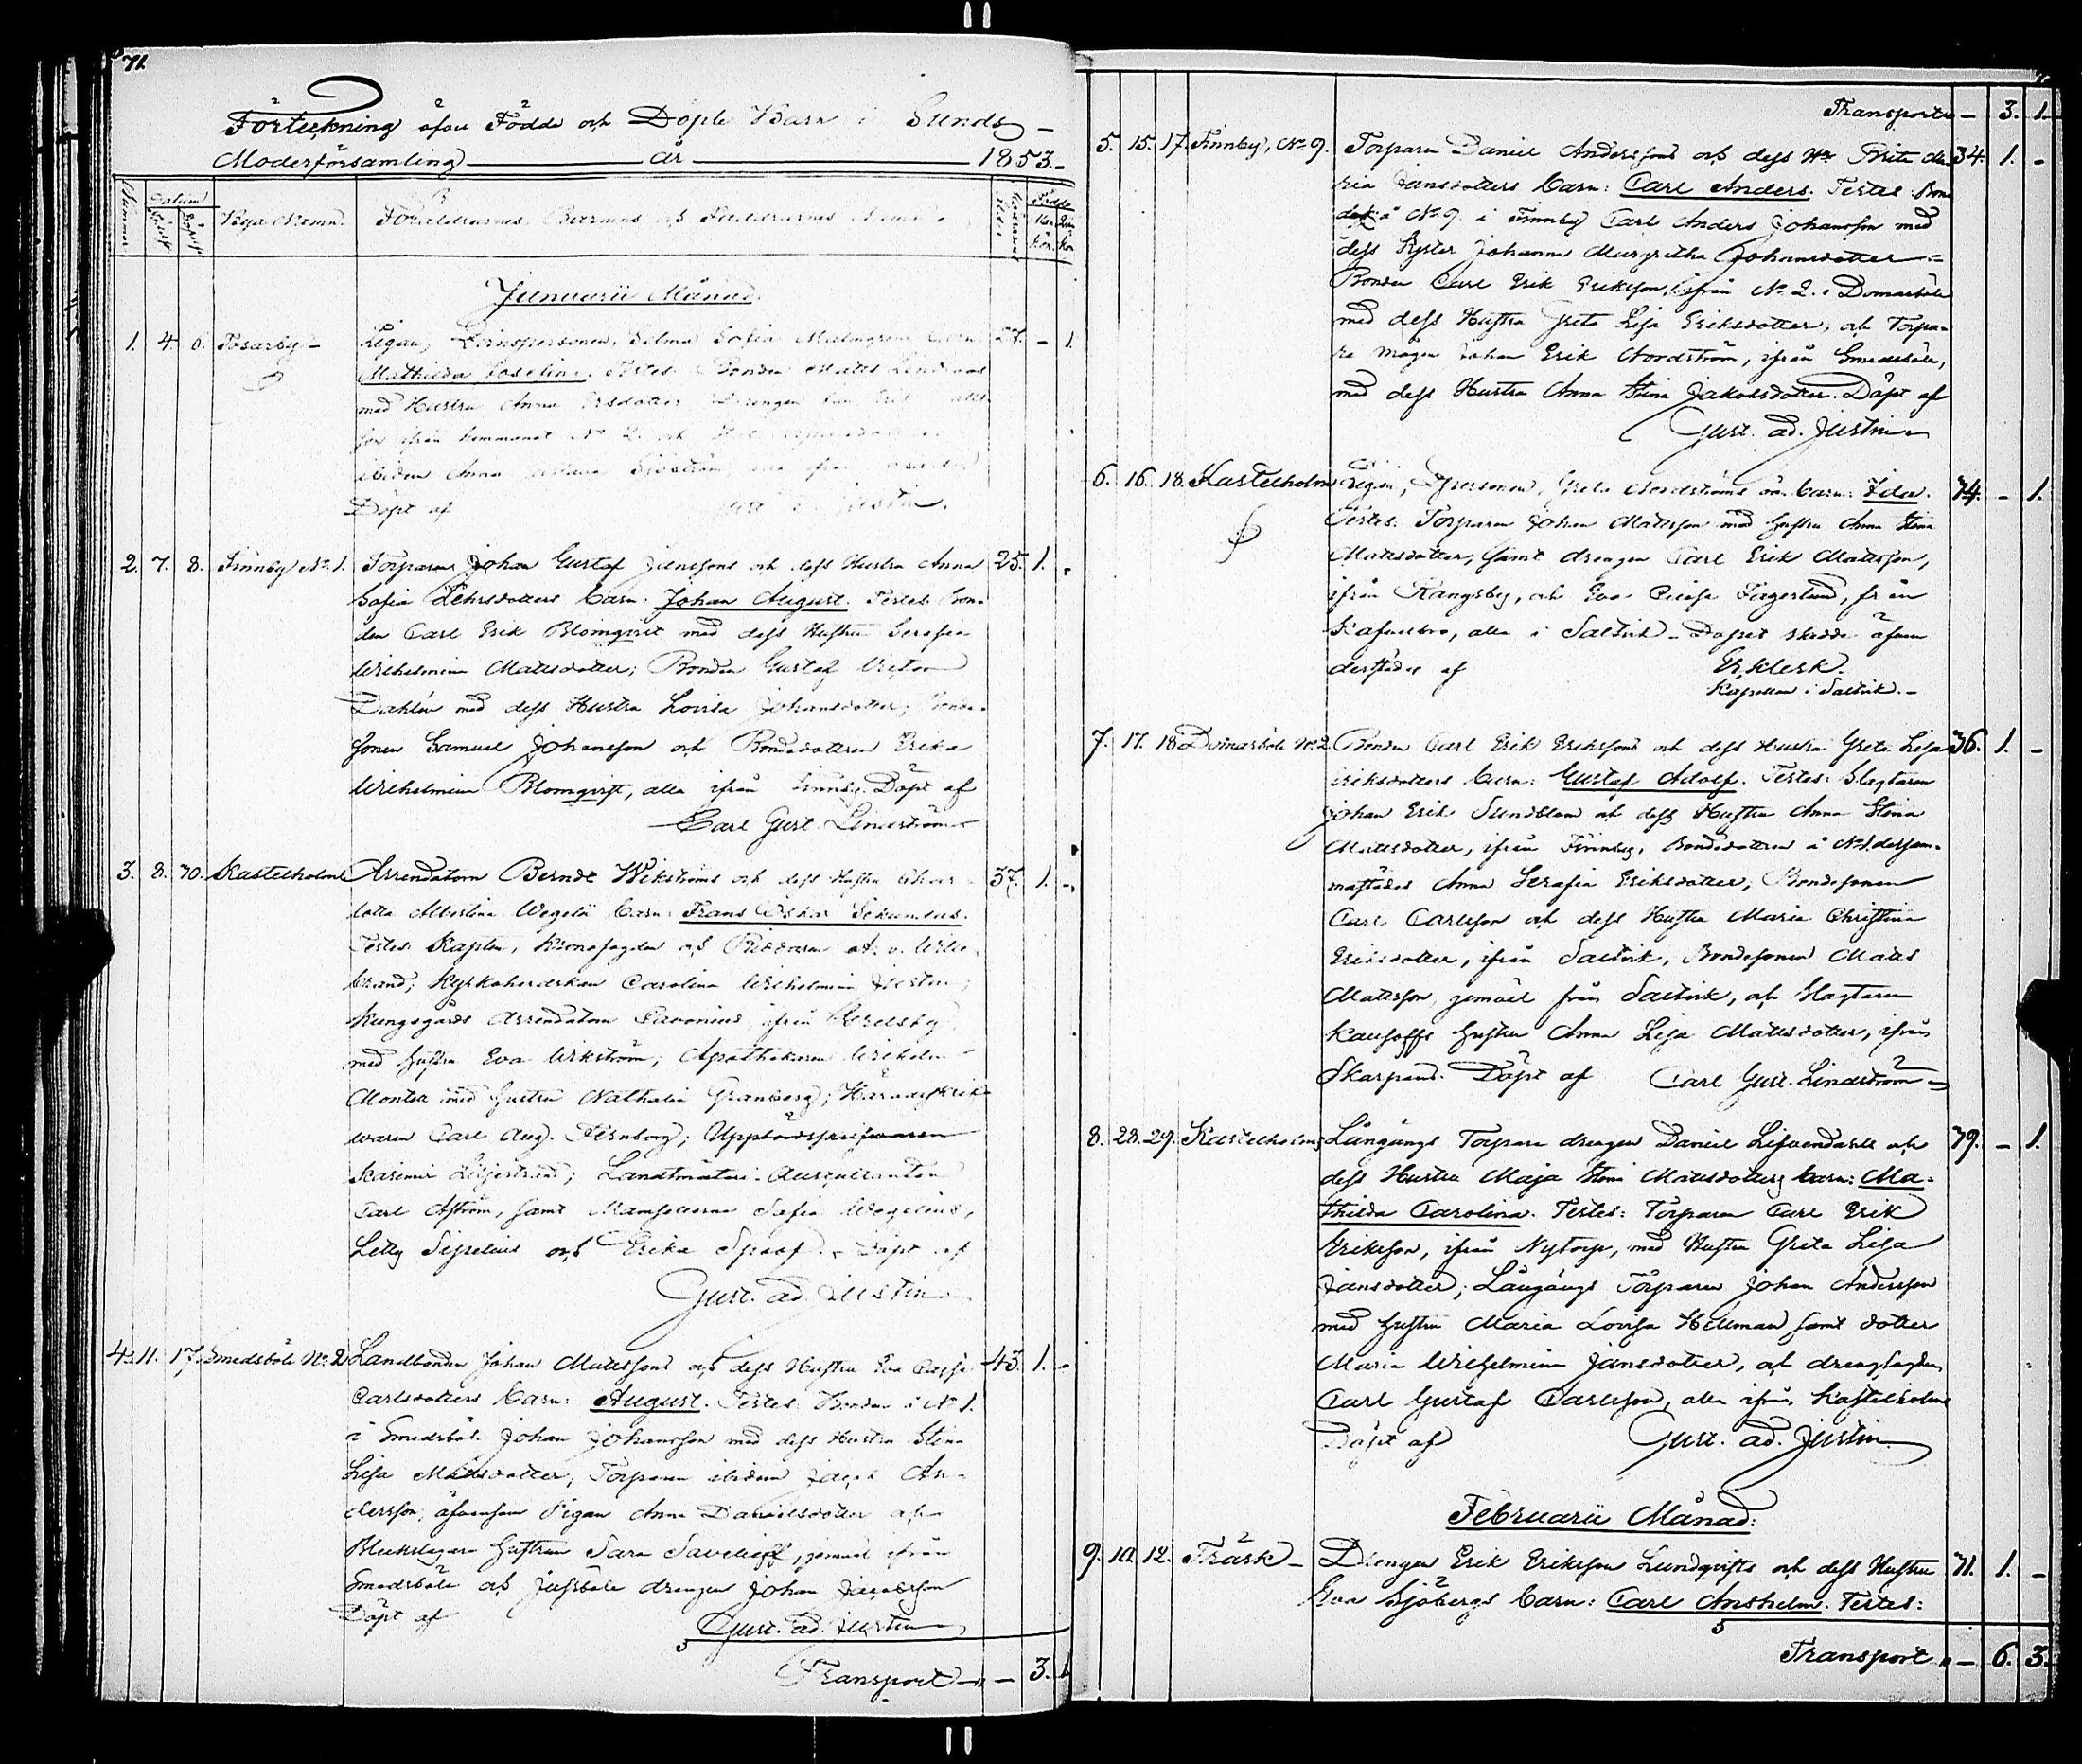 71.
Förteckning öfver Födde och Döpte Barn i Sunds
Moderförsamling år 1853.
Nummer Datum Födelse Döpelse Byar Namn. Föräldrarnes, Barnens och Faddrarnes Namn. Födde Man kön Qvin kön
Januarii Månad.
1. 4. 6. Tosarby Sofia Malmgrens barn 27. - 1.
Mathilda Josefina. Testes: Bonden Matts
med Hustru Anna Ersdotter Drengen
ifrån hemmanet No 2. och
ibidem Anna
Döpt af Justin.
2. 7. 8. Finnby No 1. Torparen Johan Gustaf Janssons och dess Hustru Anna 25. 1. -
Sofia Barn: Johan August. Testes: Bon-
den Carl Erik Blomqvist med dess Hustru Serafia
Wilhelmina Mattsdotter; Bonden Gustaf
Dahlén med dess Hustru Lovisa Johansdotter; Bonde-
sonen Samuel Johansson och Bondedottren Erika
Wilhelmina Blomqvist, alla ifrån Finnby. Döpt af
Carl Gust. Lindström
3. 8. 30. Kastelholm Arrendatorn Berndt Wikströms och dess Hustru Char- 37. 1. -
lotta Albertina Wegelii barn: Frans Oskar Sekundus.
Testes: Kapten, Kronofogden och Riddaren A. v. Wille-
brand; Kyrkoherdskan Carolina Wilhelmina Justin;
Kungsgårds Arrendatorn Savonius, ifrån Grelsby
med Hustru Eva Wikström; Apothekaren Wilhelm
Montell med Hustru Nathalia Granberg; Häradsskrif-
waren Carl Aug. Fernborg; Uppbördsskrifwaren
Kasimir Liljestrand; Landtmäteri-Auscultanten
Carl Åström, samt Mamsellerna Sofia Wegelius,
Letty Sipelius och Erika Spoof. Döpt af
Gust. Ad. Justin
4. 11. 17. Smedsböle No 2 Landbonden Johan Mattssons och dess Hustru Eva Cajsa 43. 1. -
Carlsdotters barn: August. Testes: Bonden å No 1.
i Smedsböle Johan Johansson med dess Hustru Stina
Lisa Mattsdotter; Torparen ibidem Jacob An-
dersson; äfvensom Pigan Anna Danielsdotter och
Bleckslagare Hustrun Sara Savelieff, ifrån
Smedsböle och Jussböle drengen Johan Jacobsson
Döpt af Gust. Ad. Justin
Transport - 3. 1.
Transport - 3. 1.
5. 15. 17. Finnby, No 9. Torparen Daniel Anderssons och dess Hu Brita Ma- 34. 1. -
ria Jansdotters barn: Carl Anders. Testes: Bon-
den å No 9. i Finnby Carl Anders Johansson med
dess Syster Johanna Margretha Johansdotter
Bonden Carl Erik Eriksson, ifrån No 2. i Domarböle
med dess Hustru Greta Lisa Eriksdotter, och Torpa-
re Mågen Johan Erik Nordström, ifrån Smedsböle,
med dess Hustru Anna Stina Jakobsdotter. Döpt af
Gust. Ad. Justin
6. 16. 18. Kastelholm Greta Nordströms oä. barn: Ida. 74. - 1.
Testes: Torparen Johan Mattsson med Hustru Anna Stina
Mattsdotter, samt drengen Carl Erik Mattsson,
ifrån Rangsby, och Eva Cajsa Fagerlund, från
Kafvelbro, alla i Saltvik. Dopet skedde äfven
derstädes af Er. Klerk.
Kapellan i Saltvik.
7. 17. 18. Domarböle No 2. Bonden Carl Erik Erikssons och dess Hustru Greta Lisa 36. 1. -
Eriksdotters barn: Gustaf Adolf. Testes: Slagtaren
Johan Erik Sundblom och dess Hustru Anna Stina
Mattsdotter, ifrån Finnby, Bondedottren å No 1. dersam-
mastädes Anna Serafia Eriksdotter; Bondesonen
Carl Carlsson och dess Hustru Maria Christina
Eriksdotter, ifrån Saltvik, Bondesonen Matts
Mattsson, jemväl från Saltvik, och Slagtaren
Kausoffs Hustru Anna Lisa Mattsdotter, ifrån
Skarpans. Döpt af Carl Gust. Lindström
8. 28. 29. Kastelholm Långängs Torpare drengen Daniel och 79. - 1.
dess Hustru Maja Stina Mattsdotters barn: Ma-
thilda Carolina. Testes: Torparen Carl Erik
Eriksson, ifrån Nytorp, med Hustru Greta Lisa
Jansdotter; Långängs Torparen Johan Andersson
med Hustru Maria Lovisa Hellman samt dotter
Maria Wilhelmina Jansdotter, och
Carl Gustaf Carlsson, alla ifrån Kastelholm
Döpt af Gust. Ad. Justin
Februarii Månad:
9. 10. 12. Träsk Drengen Erik Eriksson Lundqvists och dess Hustru 71. 1. -
Eva Sjöbergs barn: Carl Anshelm. Testes:
Transport - 6. 3.